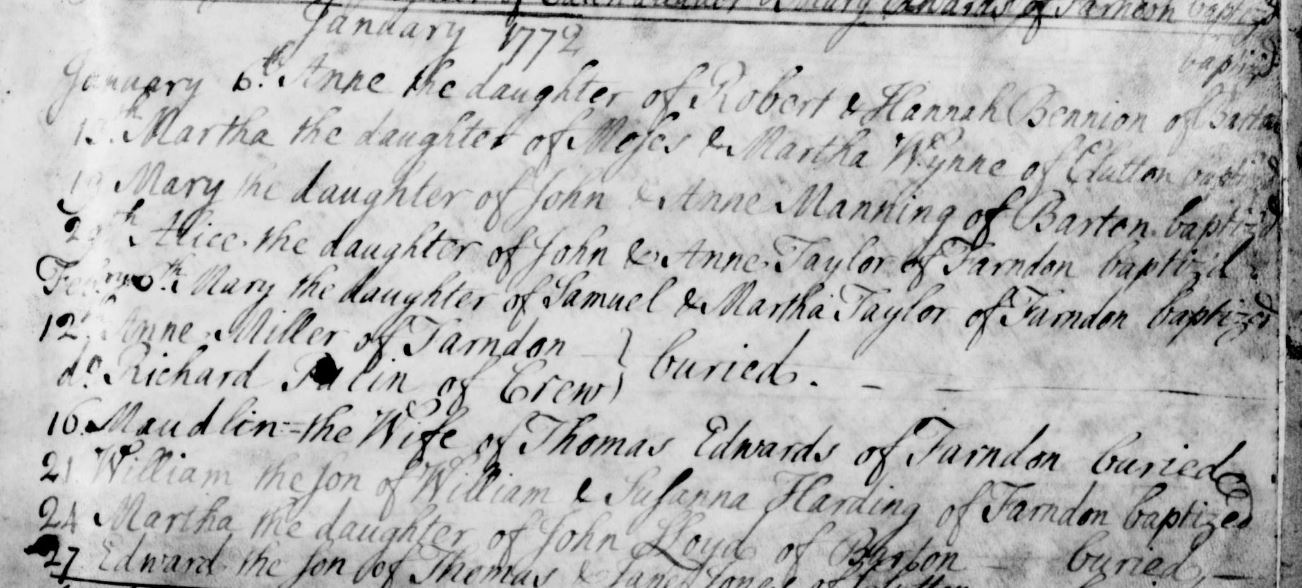 of & Mary Edwards of Farndon baptiz
January 1772
baptiz'd
January 6th. Anne the daughter of Robert & Hannah Bennion of Barton
13th Martha the daughter of Moses & Martha Wynne of Clutton
19 Mary the daughter of John & Anne Manning of Barton baptiz'd
29th Alice the daughter of John & Anne Taylor of Farndon baptiz'd
Febry 6th. Mary the daughter of Samuel & Martha Taylor of Farndon baptized
12th Anne Miller of Farndon } buried.
do. Richard Palin of Crew
16 Maudlin = the Wife of Thomas Edwards of Farndon buried
21 William the son of William & Susanna Harding of Farndon baptized
24 Martha the daughter of John Lloyd of Barton — buried
27 Edward the son of Thomas & Jane of